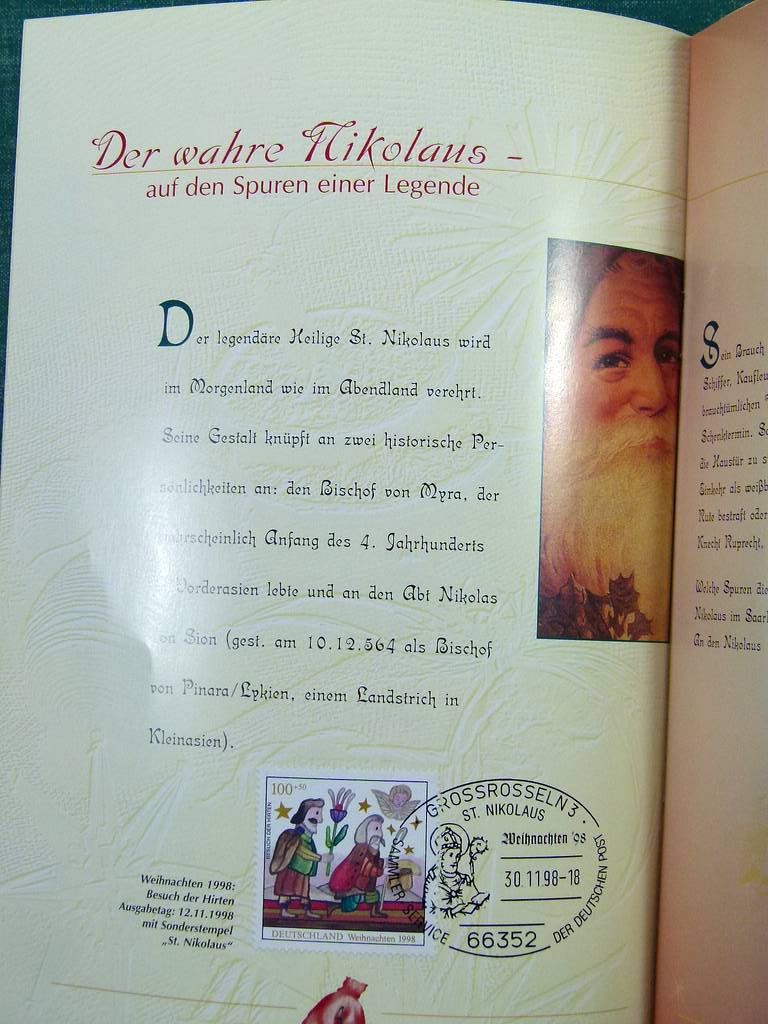 Der wahre Nikolaus –
auf den Spuren einer Legende
Der legendäre Heilige St. Nikolaus wird
im Morgenland wie im Abendland verehrt.
Seine Gestalt knüpft an zwei historische Per-
sönlichkeiten an: den Bischof von Myra, der
wahrscheinlich Anfang des 4. Jahrhunderts
Vorderasien lebte und an den Abt Nikolas
von Sion (gest. am 10.12.564 als Bischof
von Pinara/Lykien, einem Landstrich in
Kleinasien).
Weihnachten 1998:
Besuch der Hirten
Ausgabetag: 12.11.1998
mit Sonderstempel
„St. Nikolaus“
100+50
BESUCH DER HIRTEN
DEUTSCHLAND Weihnachten 1998
GROSSROSSELN 3
ST. NIKOLAUS
Weihnachten '98
30.11.98-18
66352
SAMMLER SERVICE
DER DEUTSCHEN POST
Sein Brauch
Schiffer, Kaufleu
brauchtümlichen
Schenktermin. Sc
die Haustür zu s
Einkehr als weißb
Rute bestraft oder
Knecht Ruprecht,
Welche Spuren die
Nikolaus im Saarl
An den Nikolaus